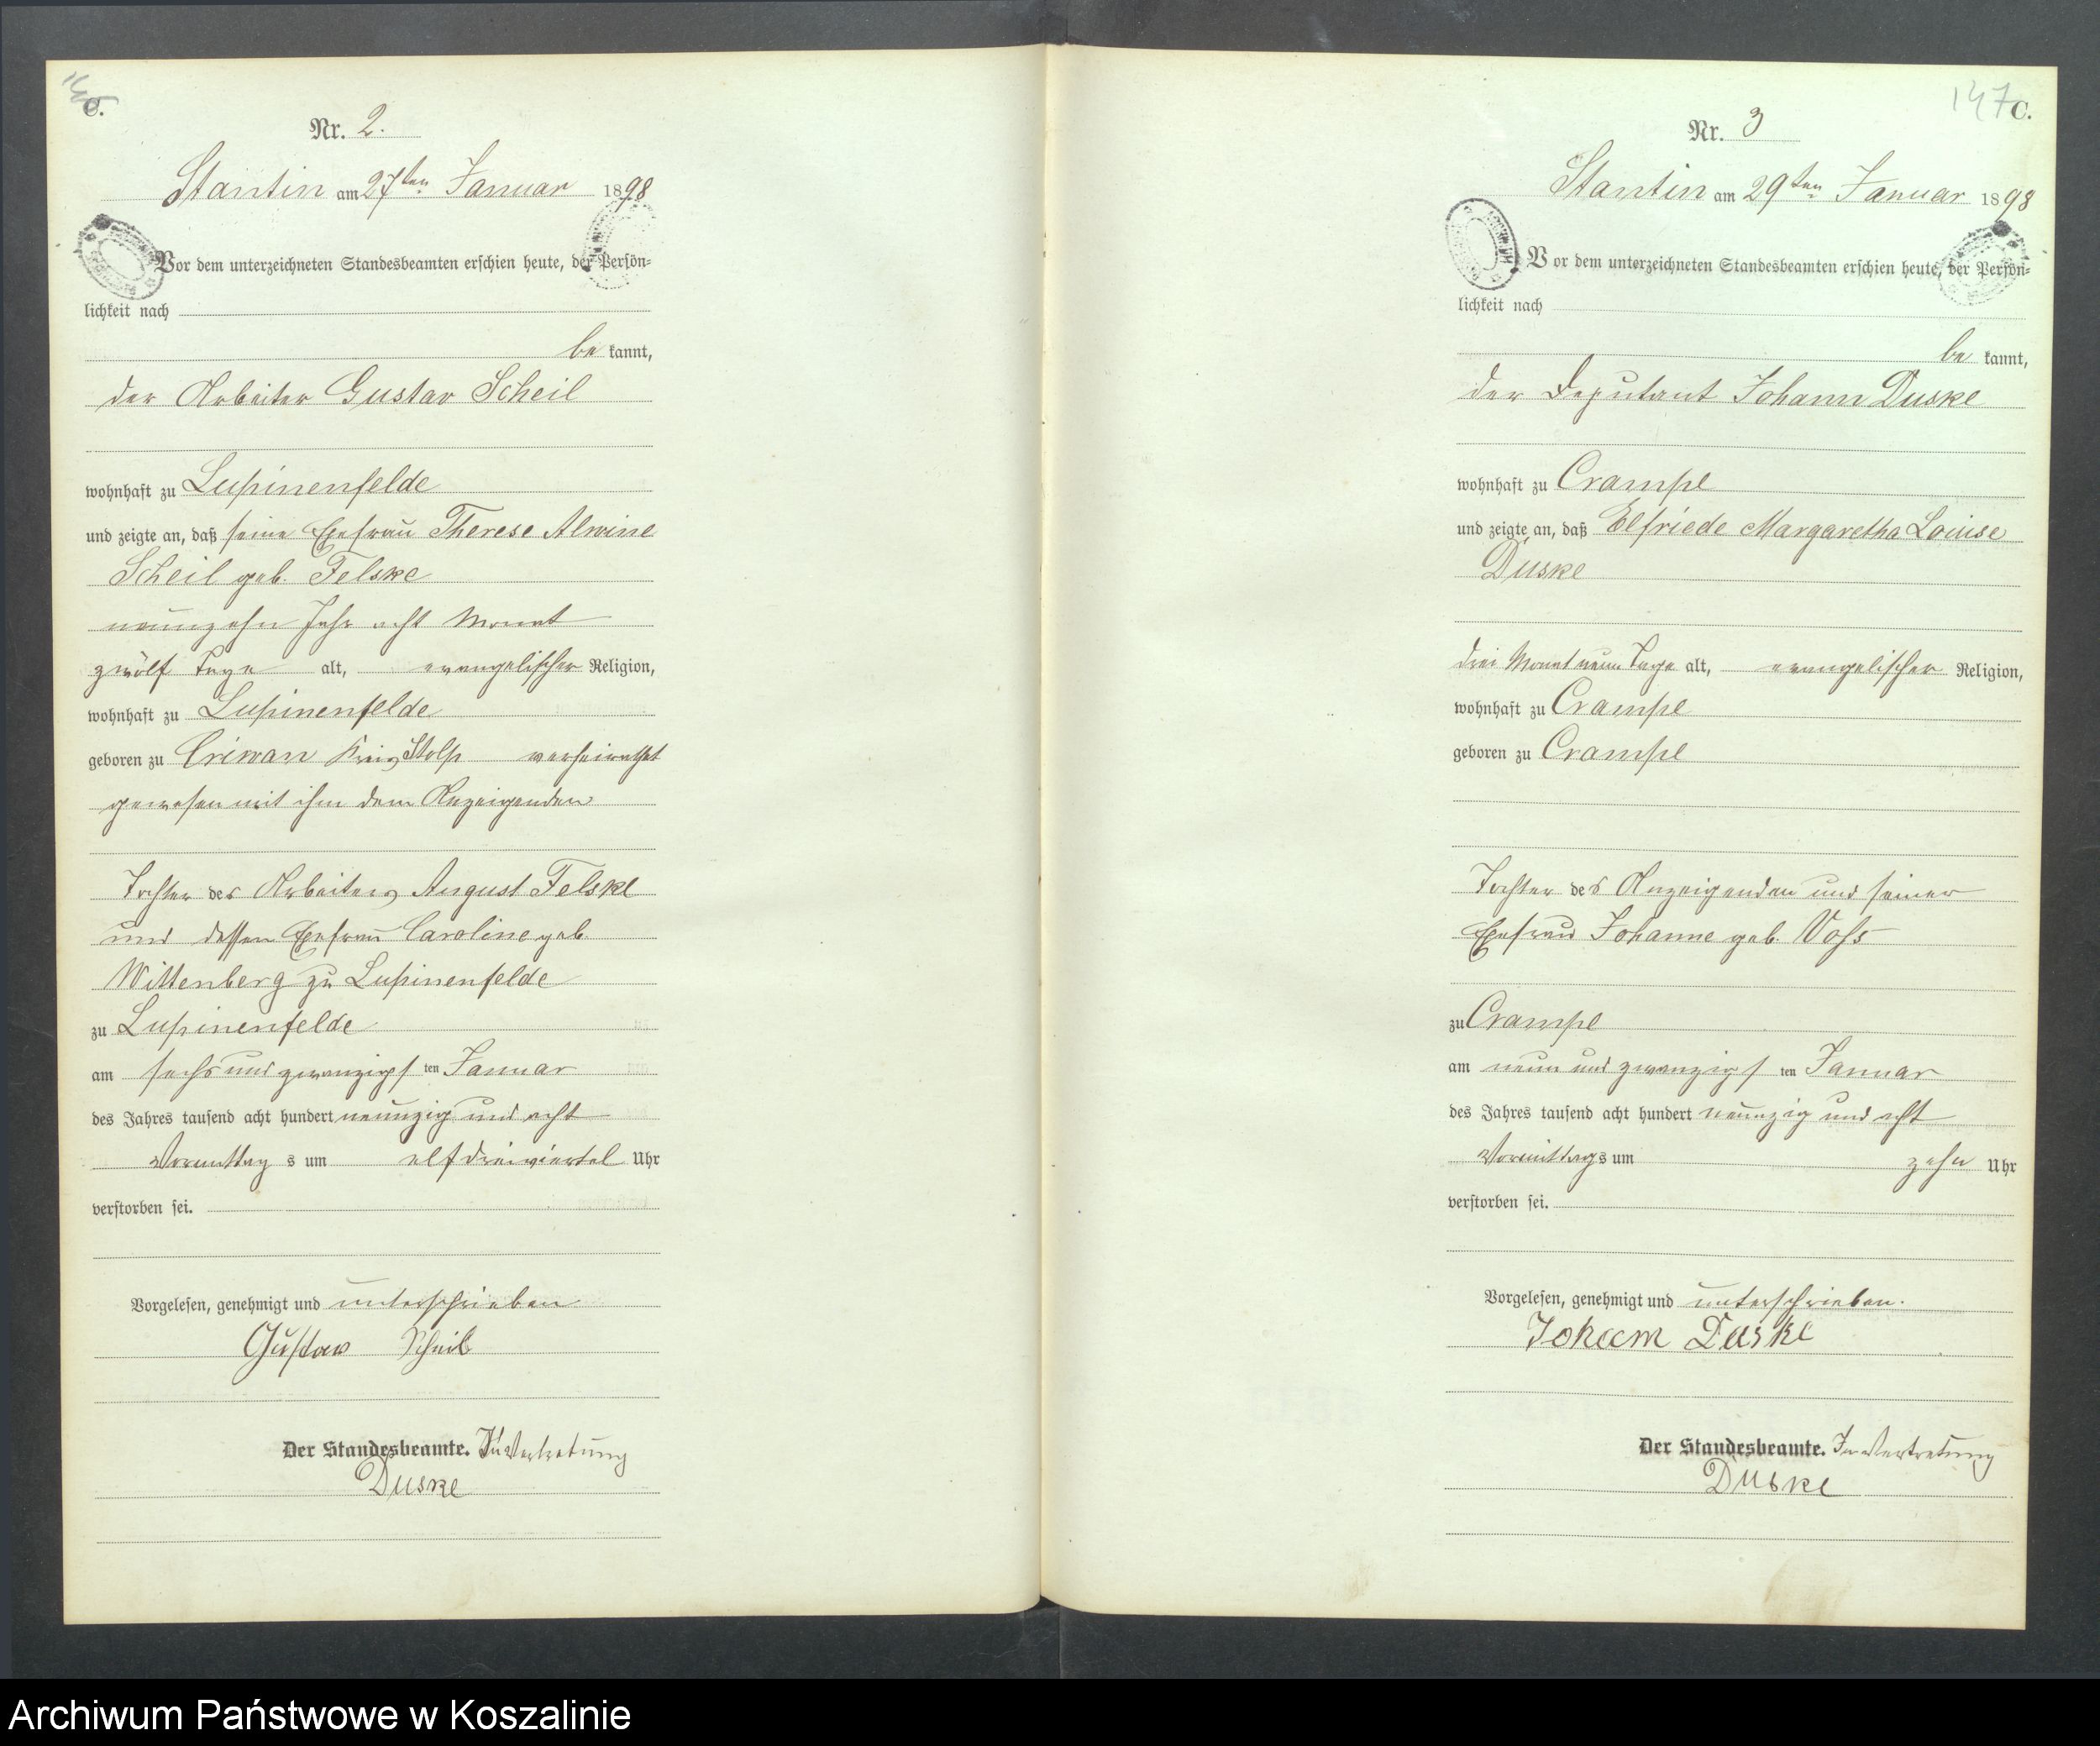 C.
Nr. 2.
Stantin am 27ten Januar 1898
Vor dem unterzeichneten Standesbeamten erschien heute, der Persön-
lichkeit nach
be kannt,
der Arbeiter Gustav Scheil
wohnhaft zu Lupinenfelde
und zeigte an, daß seine Ehefrau Therese Alwine
Scheil geb. Felske
neunzehn Jahr acht Monat
zwölf Tage alt, evangelischer Religion,
wohnhaft zu Lupinenfelde
geboren zu Criwan Kreis Stolp verheirathet
gewesen mit ihm dem Anzeigenden
Tochter des Arbeiters August Felske
und dessen Ehefrau Caroline geb.
Wittenberg zu Lupinenfelde
zu Lupinenfelde
am sechs und zwanzigsten Januar
des Jahres tausend acht hundert neunzig und acht
Vormittags um elf dreiviertel Uhr
verstorben sei.
Vorgelesen, genehmigt und unterschrieben
Gustav Scheil
Der Standesbeamte. In Vertretung
Duske
147 C.
Nr. 3
Stantin am 29ten Januar 1898
Vor dem unterzeichneten Standesbeamten erschien heute, der Persön-
lichkeit nach
be kannt,
der Deputant Johann Duske
wohnhaft zu Crampe
und zeigte an, daß Elfriede Margaretha Louise
Duske
drei Monat neun Tage alt, evangelischer Religion,
wohnhaft zu Crampe
geboren zu Crampe
Tochter des Anzeigenden und seiner
Ehefrau Johanne geb. Voss
zu Crampe
am neun und zwanzigsten Januar
des Jahres tausend acht hundert neunzig und acht
Vormittags um zehn Uhr
verstorben sei.
Vorgelesen, genehmigt und unterschrieben.
Johann Duske
Der Standesbeamte. In Vertretung
Duske
Archiwum Państwowe w Koszalinie